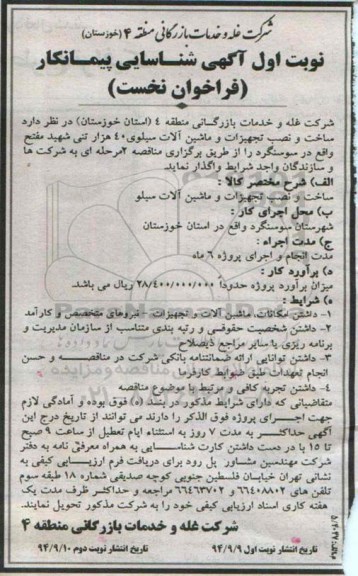 شرکت غله و خدمات بازرگانی منطقه ۴ (خوزستان)
نوبت اول آگهی شناسایی پیمانکار
(فراخوان نخست)
شرکت غله و خدمات بازرگانی منطقه ۴ (استان خوزستان) در نظر دارد
ساخت و نصب تجهیزات و ماشین آلات سیلوی۴۰ هزار تنی شهید مفتح
واقع در سوسنگرد را از طریق برگزاری مناقصه ۲مرحله ای به شرکت ها
و سازندگان واجد شرایط واگذار نماید.
الف) شرح مختصر کالا :
ساخت و نصب تجهیزات و ماشین آلات سیلو
ب) محل اجرای کار :
شهرستان سوسنگرد واقع در استان خوزستان
ج) مدت اجراء :
مدت انجام و اجرای پروژه ۶ ماه
د) برآورد کار :
میزان برآورد پروژه حدوداً ۲۸/۴۰۰/۰۰۰/۰۰۰ ریال می باشد.
ه) شرایط :
۱- داشتن امکانات، ماشین آلات و تجهیزات - نیروهای متخصص و کارآمد
۲- داشتن شخصیت حقوقی و رتبه بندی متناسب از سازمان مدیریت و
برنامه ریزی یا سایر مراجع ذیصلاح
۳- داشتن توانایی ارائه ضمانتنامه بانکی شرکت در مناقصه و حسن
انجام تعهدات طبق ضوابط کارفرما
۴- داشتن تجربه کافی و مرتبط با موضوع مناقصه
متقاضیانی که دارای شرایط مذکور در بند (ه) فوق بوده و آمادگی لازم
جهت اجرای پروژه فوق الذکر را دارند می توانند از تاریخ درج این
آگهی حداکثر به مدت ۷ روز به استثناء ایام تعطیل از ساعت ۹ صبح
تا ۱۵ با در دست داشتن کارت شناسایی به همراه معرفی نامه به دفتر
شرکت مهندسین مشاور پل رود برای دریافت فرم ارزیابی کیفی به
نشانی تهران خیابان فلسطین جنوبی کوچه صدیقی شماره ۱۸ طبقه سوم
تلفن های ۶۶۴۰۸۸۰۲ و ۶۶۴۶۳۷۰۲ مراجعه و حداکثر ظرف مدت یک
هفته کاری اسناد ارزیابی کیفی خود را به شرکت مذکور تحویل نمایند.
شرکت غله و خدمات بازرگانی منطقه ۴
تاریخ انتشار نوبت اول ۹۴/۹/۹ تاریخ انتشار نوبت دوم ۹۴/۹/۱۰